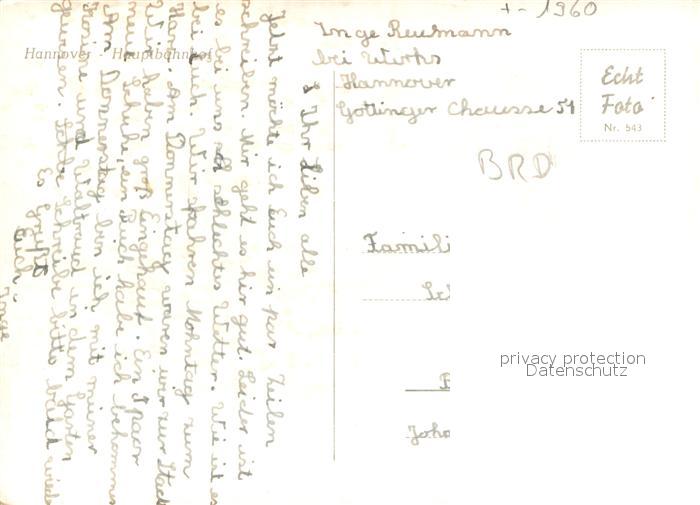 +- 1960
Inge Reusmann
bei Wirths
Hannover
Göttinger Chausse 51
Hannover - Hauptbahnhof
Echt
Foto
Nr. 543
BRD
Famili
Joh
privacy protection
Datenschutz
Ihr Liben alle
Jetzt möchte ich Euch ein par Zeilen
schreiben. Mir geht es hir gut. Leider ist
es bei uns schlechtes Wetter. Wie ist es
bei Euch. Wir fahren Mohntag zum
Harz. Am Donnerstag waren wir zur Stadt
Wir haben groß Eingekauft. Ein Paar
neue Schuhe, ein habe ich bekommen
Am Donnerstag bin ich mit meiner
und Waltraud in dem Garten
gewesen. Schreibe bitte bald wied
Es Grüßt
Euch.
Inge